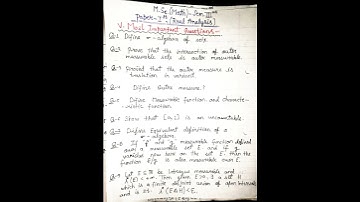 M.Sc (Math) - Sem
Paper - (Real Analysis)
V. Most Important Questions -
Q.1 Difine σ - algebra of sets.
Q.2 Prove that the intersection of outer
measurable sets is outer measurable.
Q.3 Proved that the outer measure is
translation in variant.
Q.4 Difine Outer measure?
Q.5 Difine Measurable function and characte-
ristic function.
Q.6 Show that [0,1] is an uncountable.
Q.7 Difine Equivalent definition of a
σ - algebra.
Q.8 If 'f' and 'g' measurable function defined
over a measurable set E and if g
vanishes now here on the set E, then the
function f/g is also measurable over E.
Let E ⊆ R be Lebesgue measure and
(E) < ∞. Then given ε > 0, ∃ a set H
which is a finite disjoint union of open intervals
and is s.t. (E Δ H) < ε.